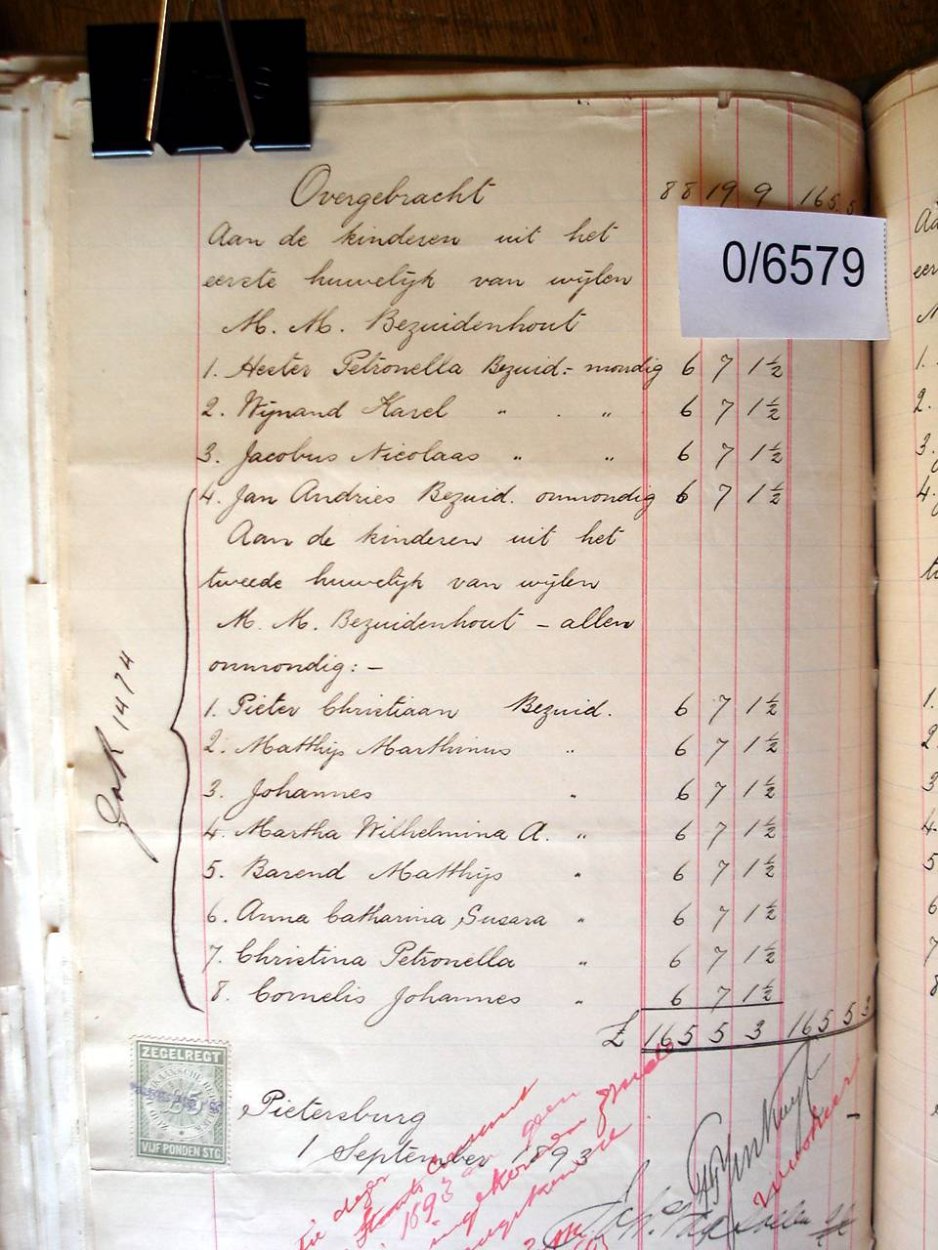 Overgebracht 88 19 9 165 5
0/6579
Aan de kinderen uit het
eerste huwelijk van wijlen
M. M. Bezuidenhout
1. Hester Petronella Bezuid:- mondig 6 7 1½
2. Wijnand Karel " . " 6 7 1½
3. Jacobus Nicolaas " " 6 7 1½
4. Jan Andries Bezuid. onmondig 6 7 1½
Aan de kinderen uit het
tweede huwelijk van wijlen
M. M. Bezuidenhout - allen
onmondig:-
1. Pieter Christiaan Bezuid. 6 7 1½
2. Matthijs Marthinus " 6 7 1½
3. Johannes " 6 7 1½
4. Martha Wilhelmina A. " 6 7 1½
5. Barend Matthijs " 6 7 1½
6. Anna Catharina Susara " 6 7 1½
7. Christina Petronella " 6 7 1½
8. Cornelis Johannes " 6 7 1½
£ 165 5 3 165 5 3
1474
ZEGELREGT
VIJF PONDEN STG
Pietersburg
1 September 1893
dezer
1893 geen